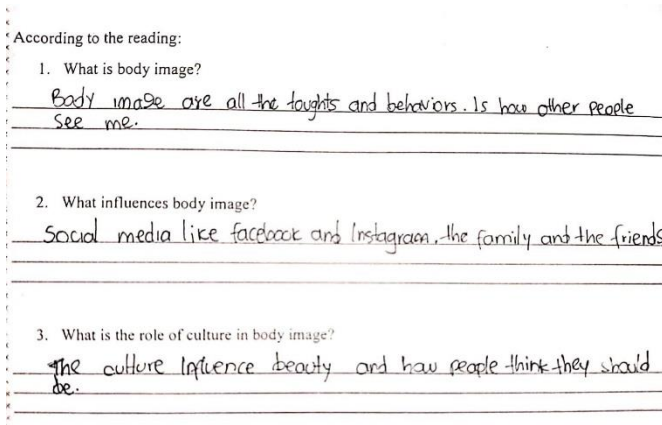 According to the reading:
1. What is body image?
Body image are all the toughts and behaviors. Is how other people
see me.
2. What influences body image?
Social media like facebook and Instagram, the family and the friends
3. What is the role of culture in body image?
The culture Influence beauty and how people think they should
be.